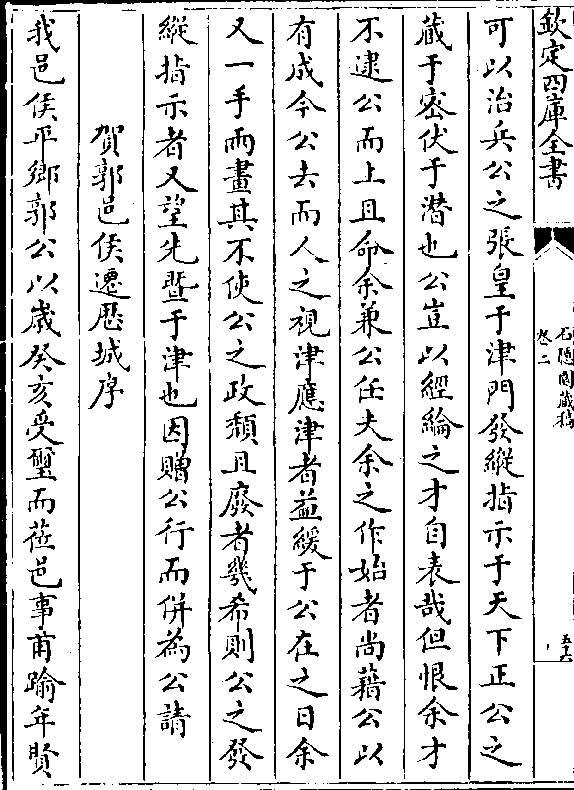 欽定四庫全書
石隱園藏稿
卷二
五十六
可以治兵公之張皇于津門發縱指示于天下正公之
藏于密伏于潜也公豈以經綸之才自表哉但恨余才
不逮公而上且命余兼公任夫余之作始者尚藉公以
有成今公去而人之視津應津者益緩于公在之日余
又一手兩畫其不使公之政頽且廢者幾希則公之發
縱指示者又望先暨于津也因贈公行而併為公請
賀郭邑侯遷歴城序
我邑侯平鄉郭公以歳癸亥受璽而莅邑事甫踰年賢